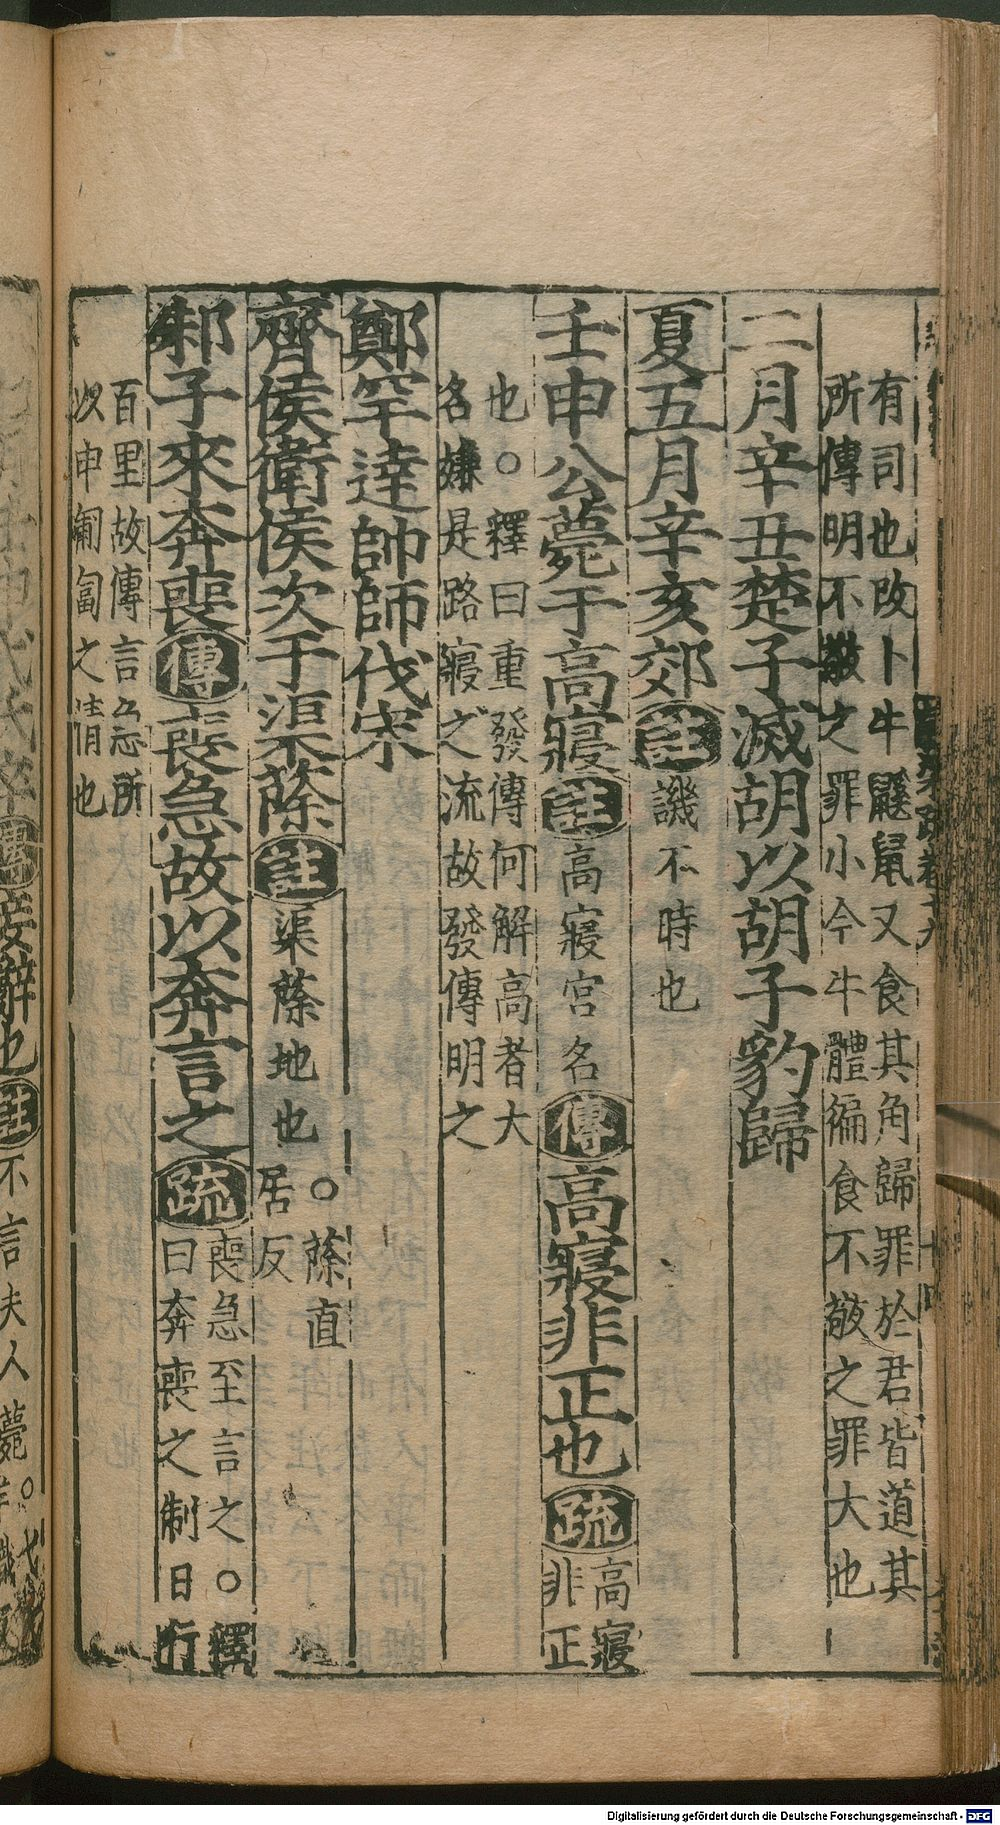 有司也改卜牛鼷鼠又食其角歸罪於君皆道其
所傳明不敬之罪小今牛體徧食不敬之罪大也
二月辛丑楚子滅胡以胡子豹歸
夏五月辛亥郊註譏不時也
壬申公薨于高寢註高寢宮名傳高寢非正也疏高寢
非正
也○釋曰重發傳何解高者大
名嫌是路寢之流故發傳明之
鄭罕達帥師伐宋
齊侯衛侯次于渠蒢註渠蒢地也○蒢直
居反
邾子來奔喪傳喪急故以奔言之疏喪急至言之○釋
曰奔喪之制日行
百里故傳言急所
以申匍匐之情也
辭也註
不言夫人薨○
Digitalisierung gefördert durch die Deutsche Forschungsgemeinschaft - DFG